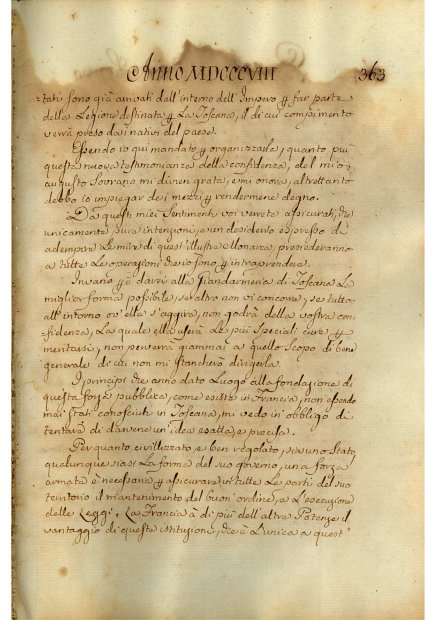 Anno MDCCCVIII 363
tati sono già arrivati dall'interno dell'Impero p far parte
della Legione destinata p La Toscana, il di cui compimento
verrà preso dai nativi del paese.
Essendo io qui mandato p organizzarle, quanto più
questa nuova testimonianza della confidenza, del mio
augusto Sovrano mi divien grata, e mi onora, altrettanto
debbo io impiegar dei mezzi p rendermene degno.
Da questi miei Sentimenti voi verete assicurati, che
unicamente pure intenzioni, e un desiderio espresso di
adempire Le mire di quest'illustre Monarca, presiederanno
a tutte Le operazioni che io sono p intraprendere.
Invano p darsi alla Giandarmeria di Toscana La
miglior forma possibile, se altro non vi concorre, se tutto
all'intorno ov'ella s'aggira, non godrà della vostra con
fidenza, La quale ella userà Le più speciali cure p
meritarsi, non perverrà giammai a quello Scopo di bene
generale di cui non mi stancherò dirigerla.
I principj che anno dato Luogo alla fondazione di
questa forza pubblica, come esiste in Francia, non essendo
mai stati conosciuti in Toscana, mi vedo in obbligo di
tentare di darvene un'idea esatta, e precisa.
Per quanto civilizzato, e ben regolato, sia uno Stato
qualunque siasi La forma del suo governo, una forza
armata è necessaria p assicurare in tutte Le parti del suo
territorio il mantenimento del buon'ordine, e L'esecuzione
delle Leggi. La Francia à di più dell'altre Potenze il
vantaggio di queste istituzioni, che è L'unica a quest'